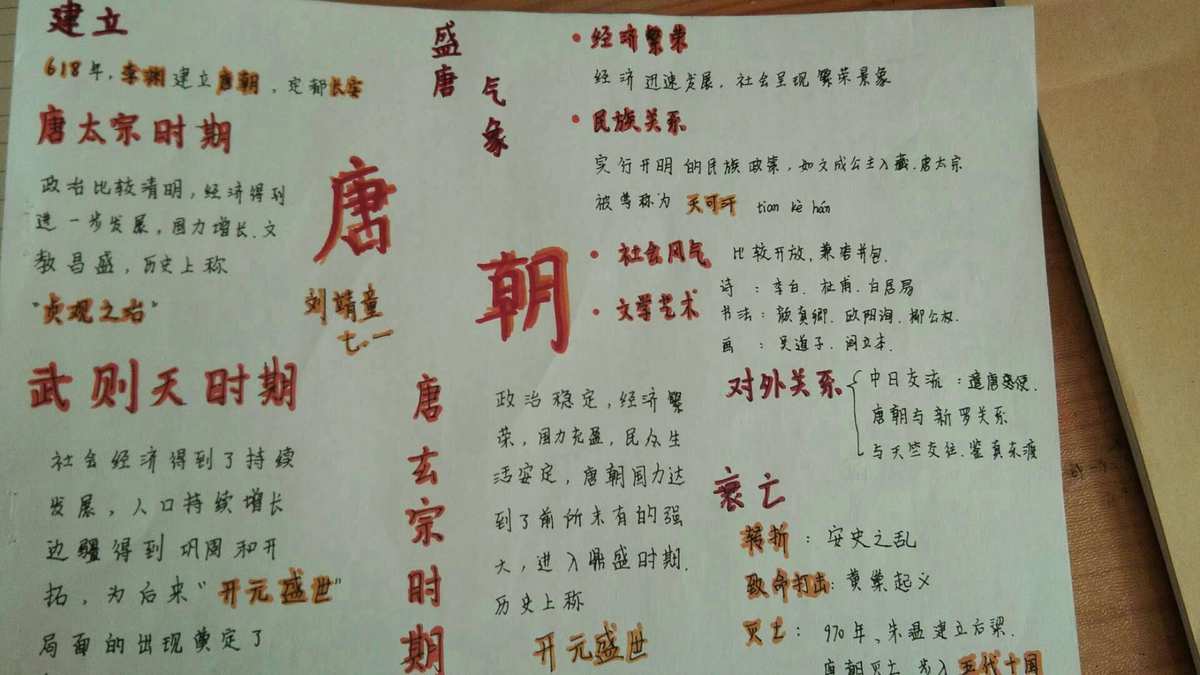 建立
618年,李渊建立唐朝,定都长安
唐太宗时期
政治比较清明,经济得到
进一步发展,国力增长.文
教昌盛,历史上称
"贞观之治"
武则天时期
社会经济得到了持续
发展,人口持续增长
边疆得到巩固和开
拓,为后来"开元盛世"
局面的出现奠定了
唐
朝
刘靖童
七.一
唐玄宗时期
政治稳定,经济繁
荣,国力充盈,民众生
活安定,唐朝国力达
到了前所未有的强
大,进入鼎盛时期.
历史上称
开元盛世
盛唐
气象
•经济繁荣
经济迅速发展,社会呈现繁荣景象
•民族关系
实行开明的民族政策,如文成公主入藏.唐太宗
被尊称为 天可汗 tian kè hán
•社会风气 比较开放,兼容并包.
•文学艺术
诗:李白.杜甫.白居易
书法:颜真卿.欧阳询.柳公权.
画:吴道子.阎立本.
对外关系
中日交流:遣唐使.
唐朝与新罗关系
与天竺交往.鉴真东渡
衰亡
转折:安史之乱
致命打击:黄巢起义
灭亡:970年、朱温建立后梁.
唐朝灭亡 步入五代十国